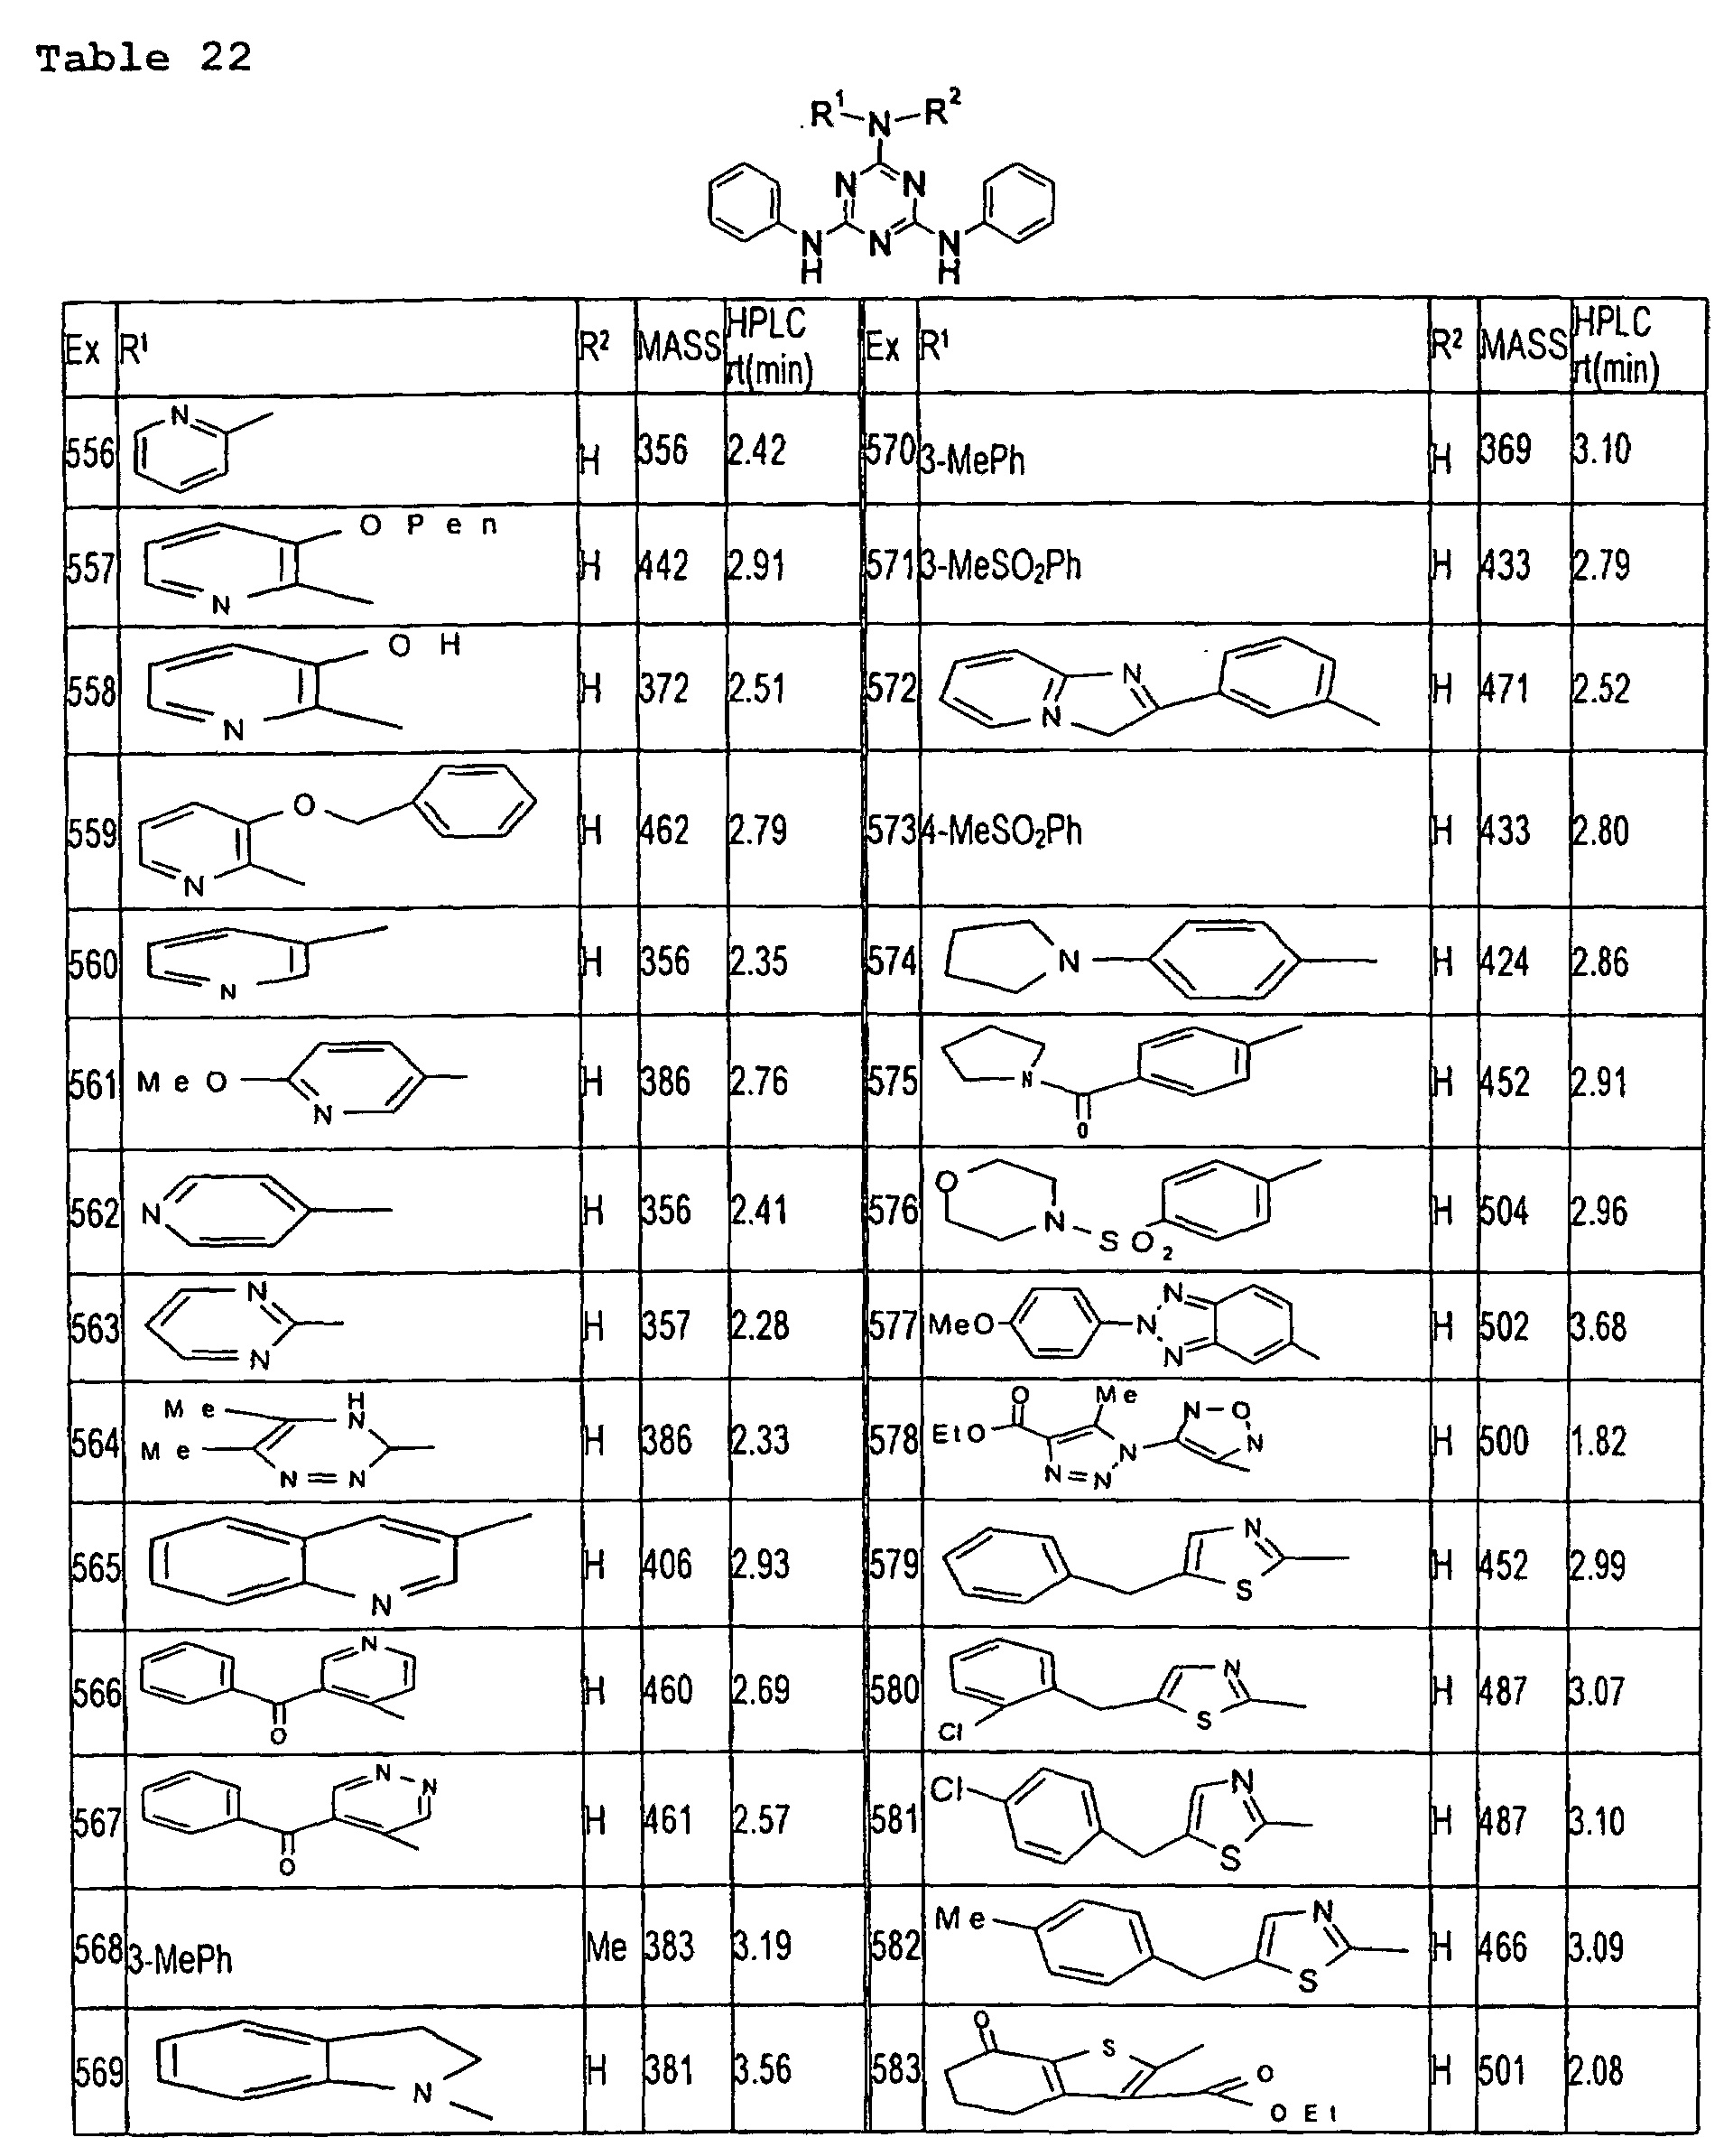 Table 22
R¹ N R²
N N
N H N N H
Ex R¹ R² MASS HPLC rt(min) Ex R¹ R² MASS HPLC rt(min)
556 N H 356 2.42 570 3-MePh H 369 3.10
557 OPen N H 442 2.91 571 3-MeSO₂Ph H 433 2.79
558 OH N H 372 2.51 572 N N H 471 2.52
559 O N H 462 2.79 573 4-MeSO₂Ph H 433 2.80
560 N H 356 2.35 574 N H 424 2.86
561 MeO N H 386 2.76 575 N O H 452 2.91
562 N H 356 2.41 576 O N SO₂ H 504 2.96
563 N N H 357 2.28 577 MeO N N N H 502 3.68
564 Me Me H N N=N H 386 2.33 578 O EtO Me N=N N N-O N H 500 1.82
565 N H 406 2.93 579 N S H 452 2.99
566 N O H 460 2.69 580 Cl N S H 487 3.07
567 N N O H 461 2.57 581 Cl N S H 487 3.10
568 3-MePh Me 383 3.19 582 Me N S H 466 3.09
569 N H 381 3.56 583 O S O OEt H 501 2.08